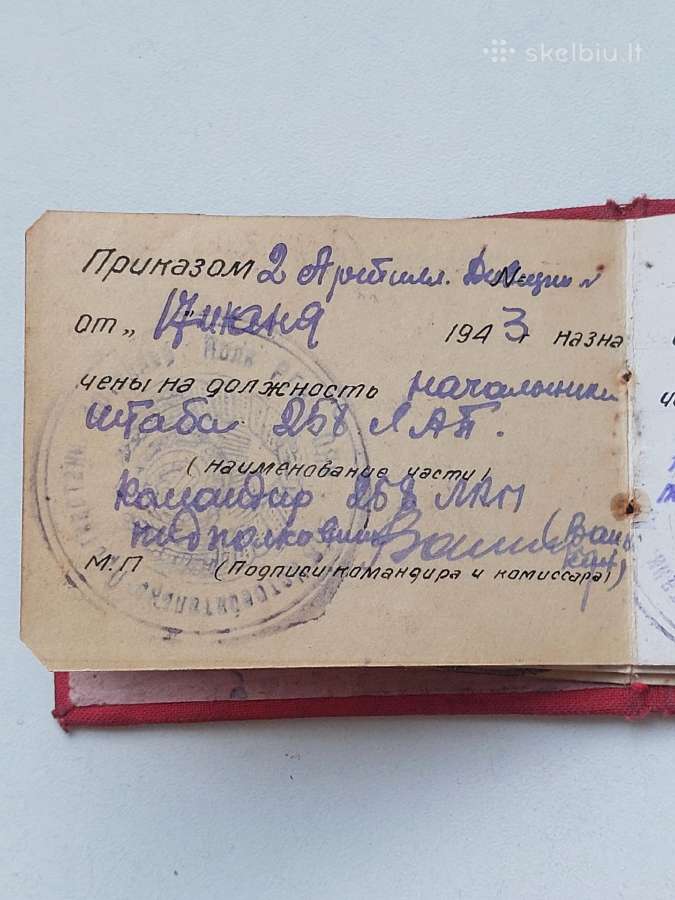 skelbiu.lt
Приказом 2 Артилл. Дивизии №
от „17" июня 1943 г назна
чены на должность начальника
штаба 258 ЛАП.
(наименование части)
Командир 258 ЛАП
подполковник
М.П (Подписи командира и комиссара)